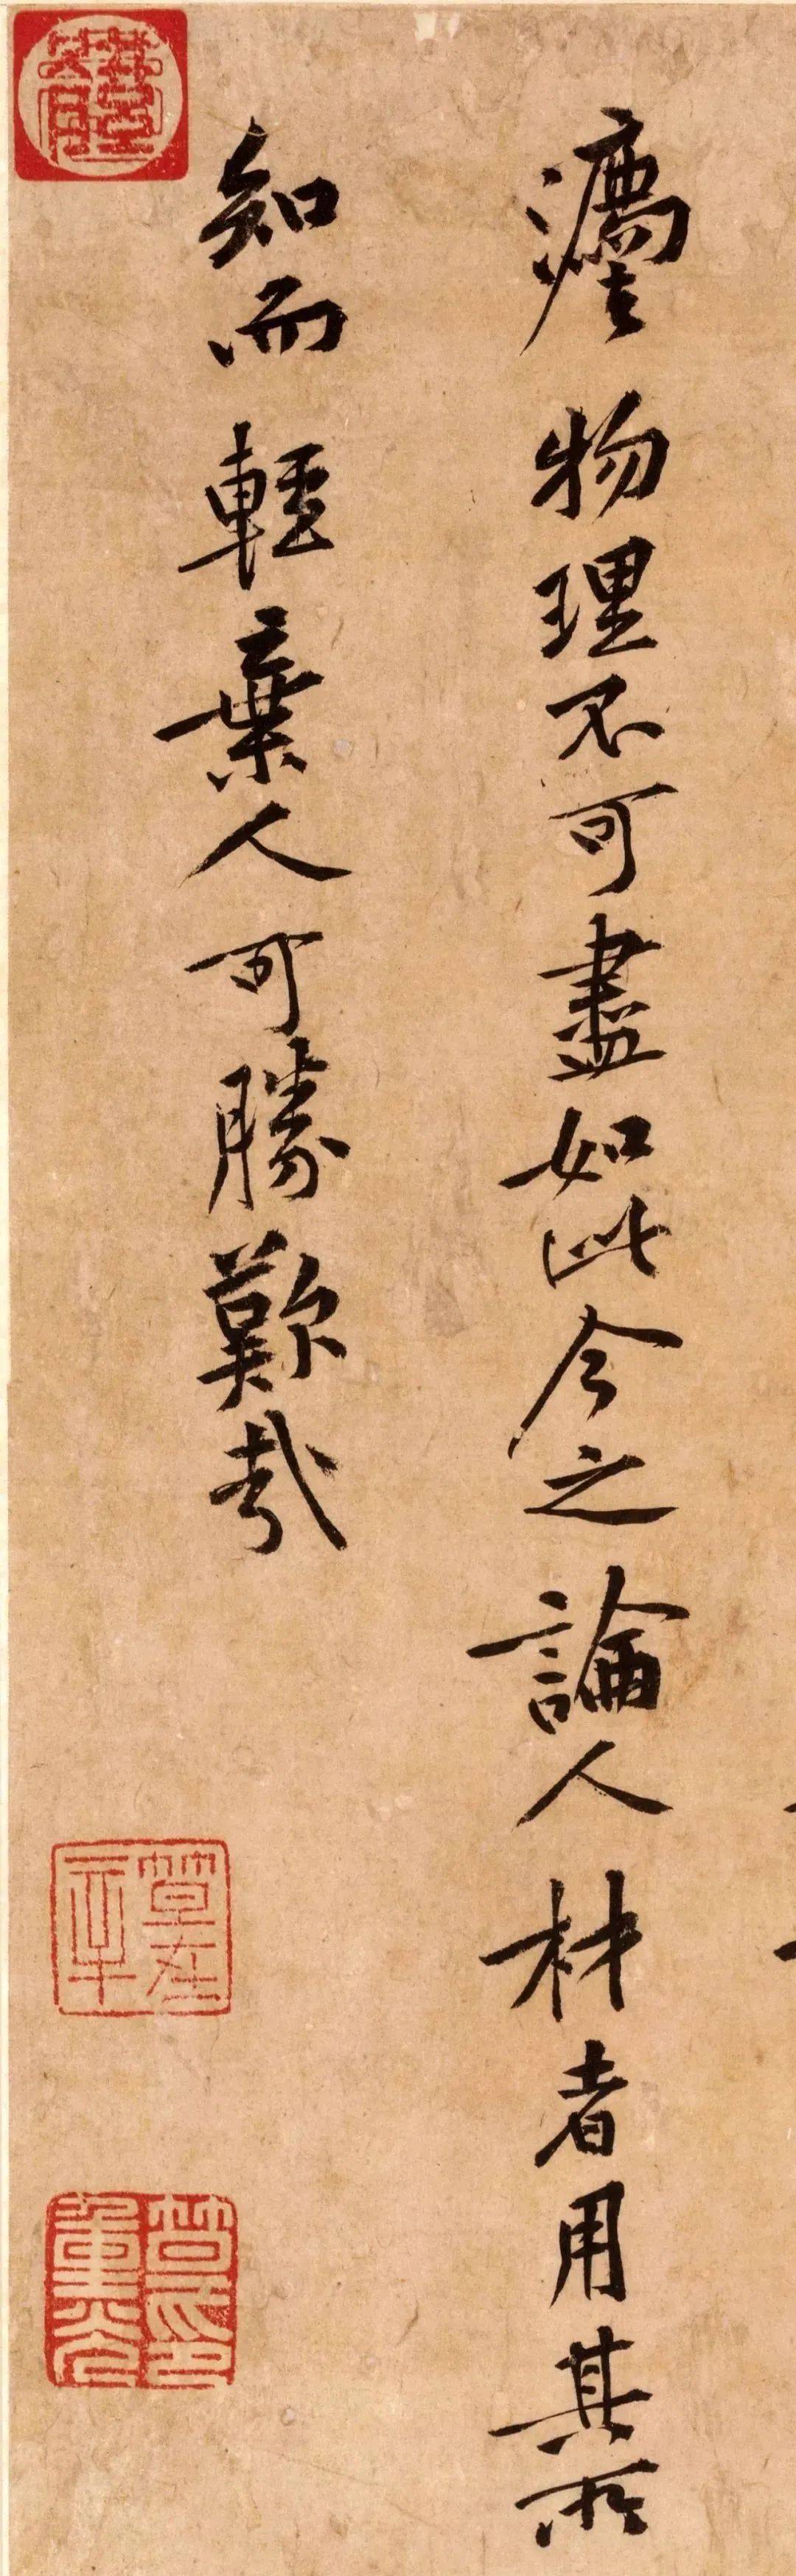 物理不可盡如此今之論人材者用其所
知而輕棄人可勝歎哉